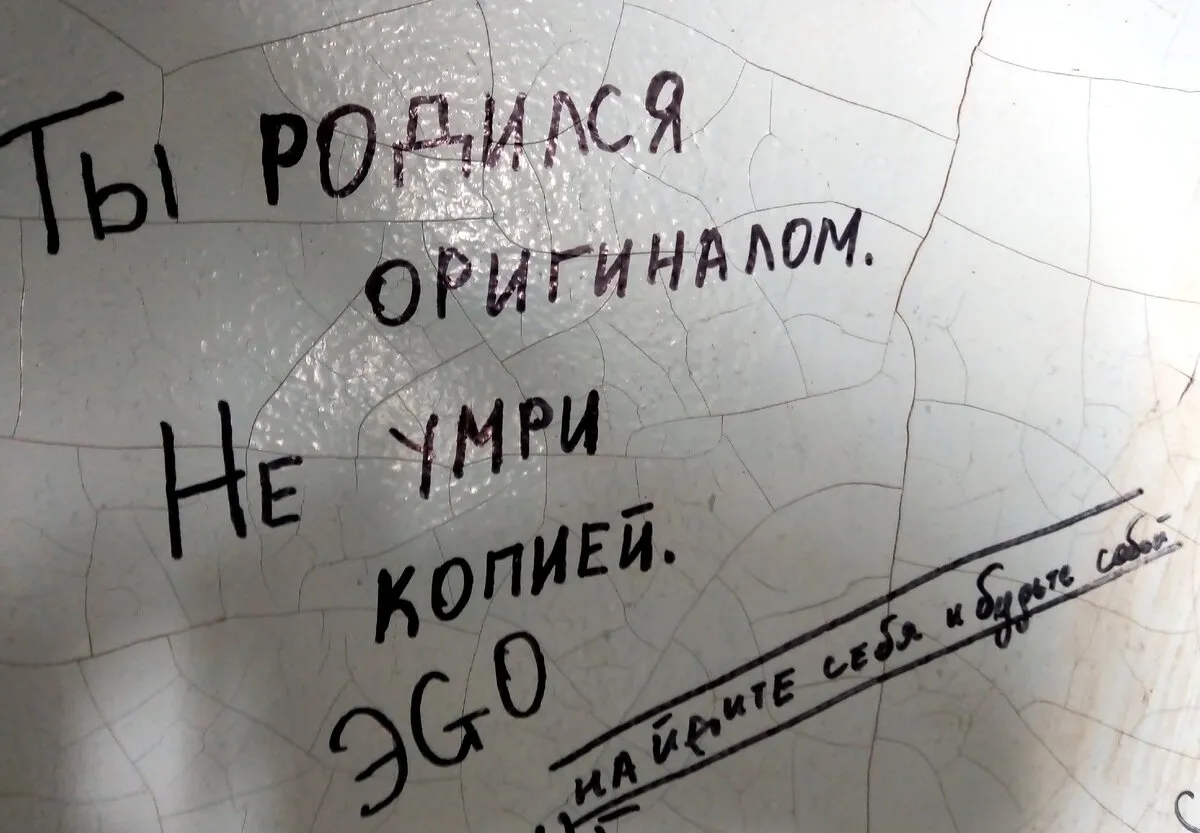 Ты родился
оригиналом.
Не умри
копией.
ЭGO
найдите себя и будьте собой